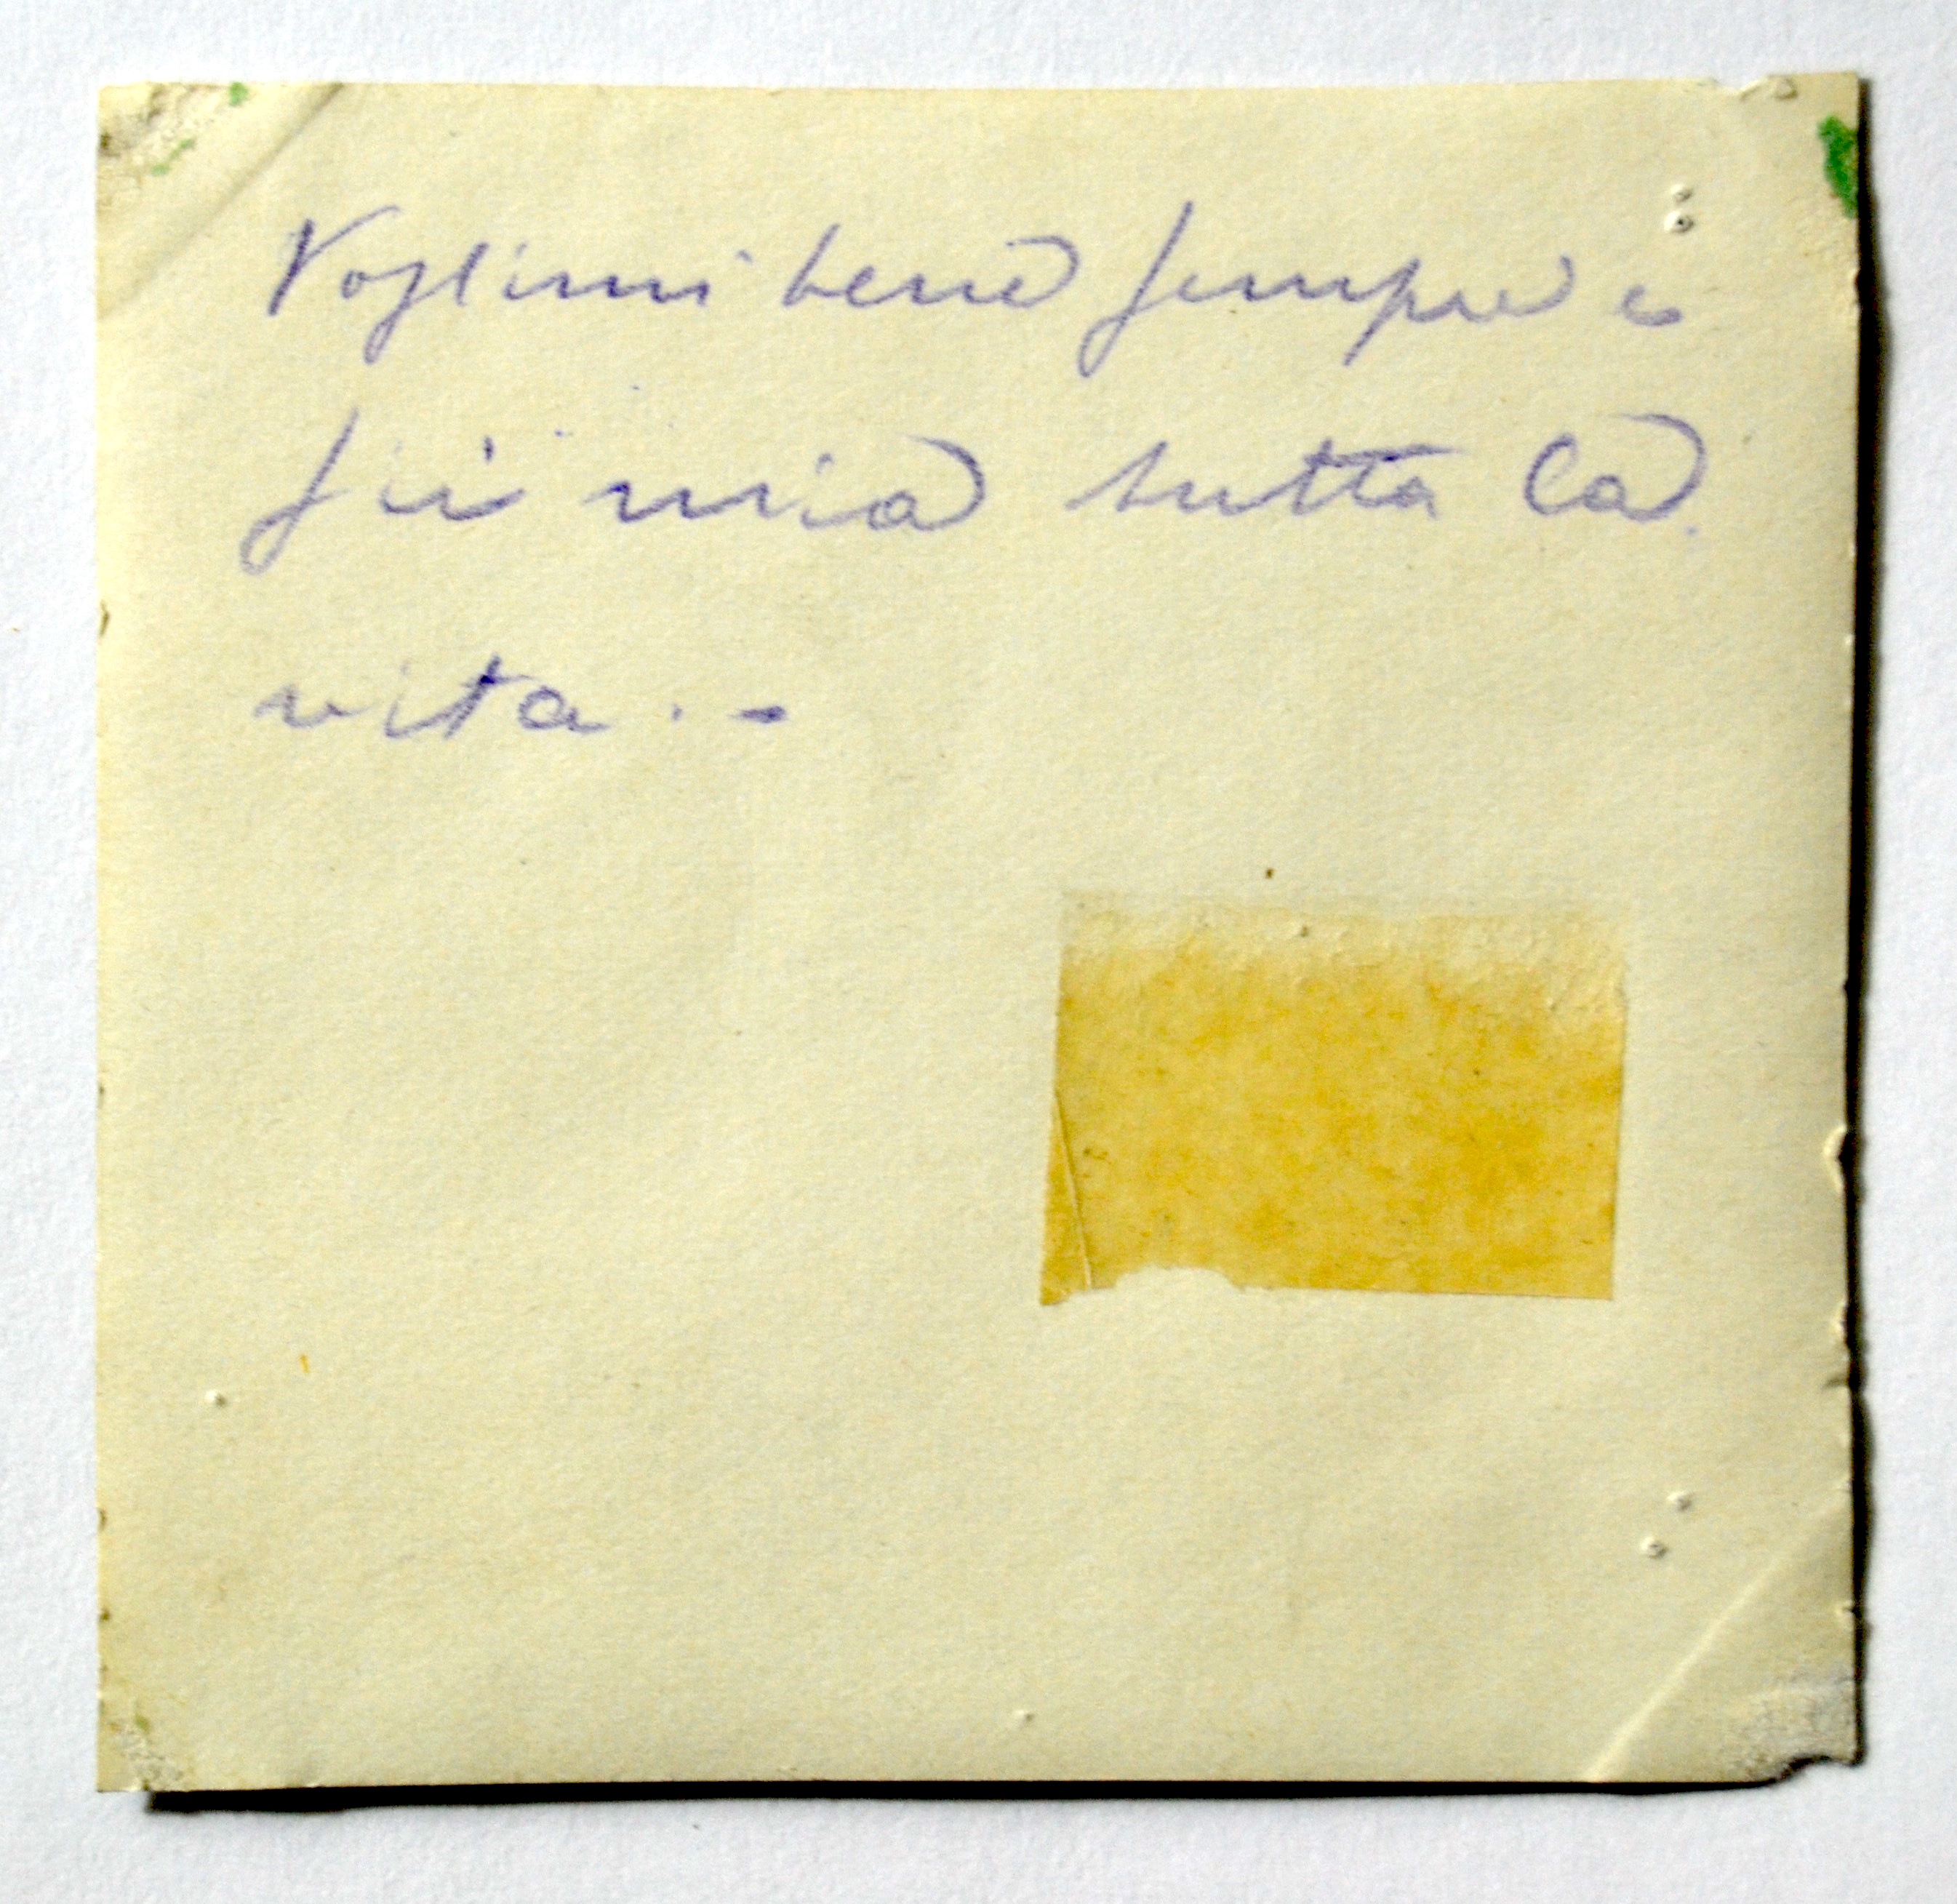 Voglimi bene sempre e
sii mia tutta la
vita . -